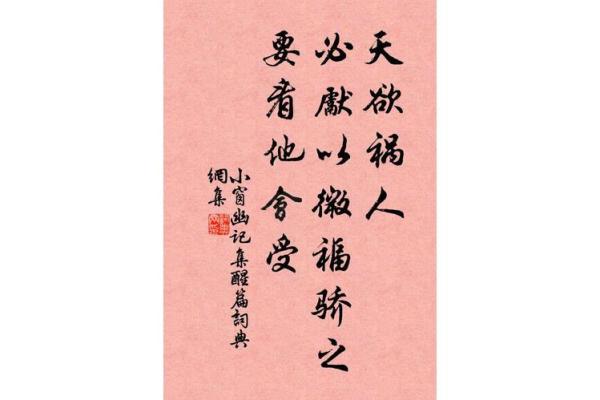 天欲祸人
必獻以微福骄之
要看他會受
小窗幽記集醒篇詞典
網集